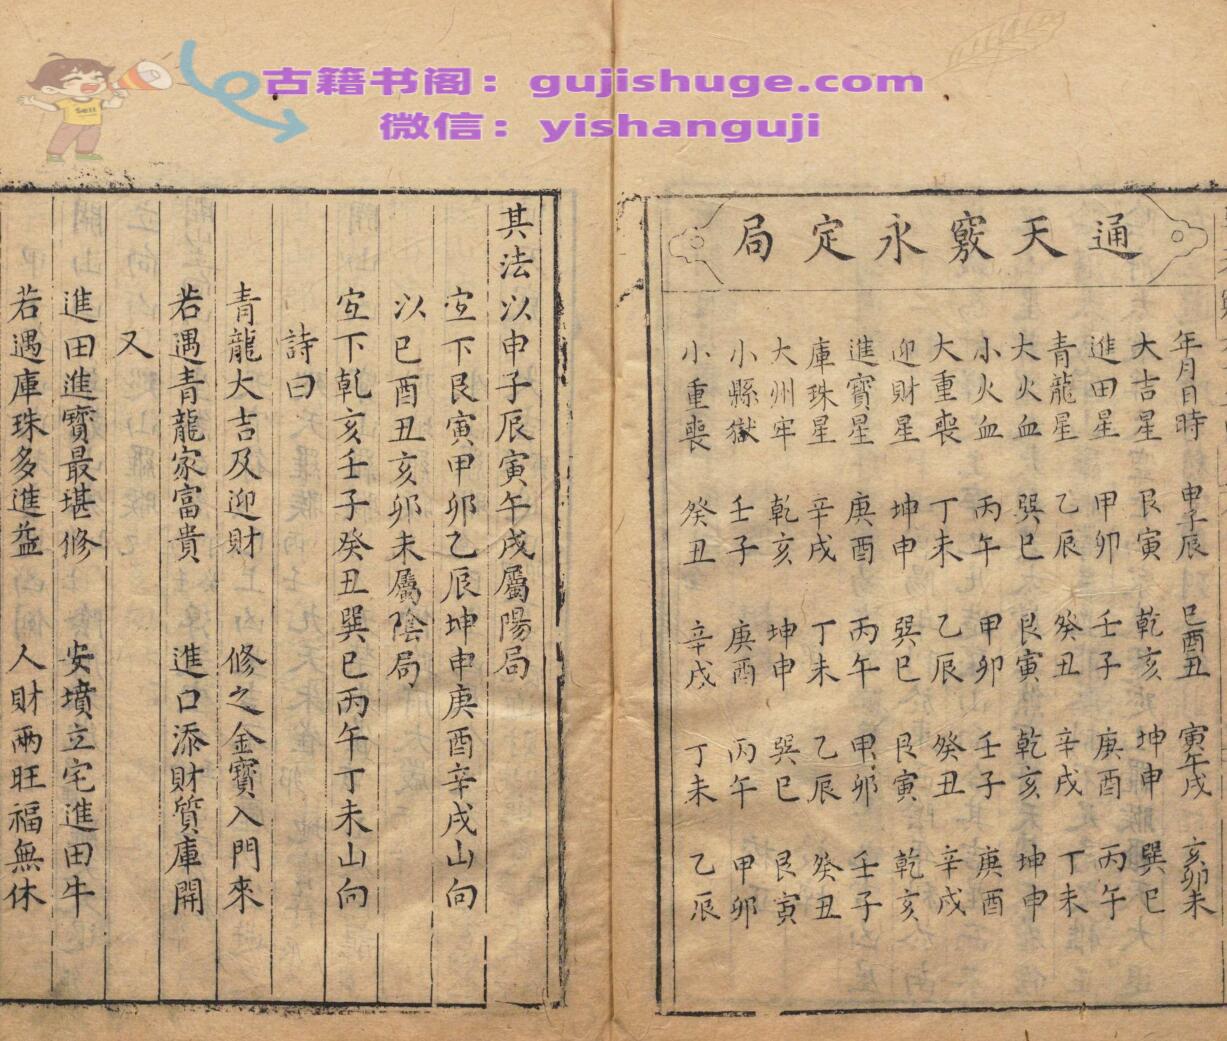 古籍书阁：gujishuge.com
微信：yishanguji
Sell
通天竅永定局
年月日時 申子辰 巳酉丑 寅午戌 亥卯未
大吉星 艮寅 乾亥 坤申 巽巳
進田星 甲卯 壬子 庚酉 丙午
青龍星 乙辰 癸丑 辛戌 丁未
大火血 巽巳 艮寅 乾亥 坤申
小火血 丙午 甲卯 壬子 庚酉
大重喪 丁未 乙辰 癸丑 辛戌
迎財星 坤申 巽巳 艮寅 乾亥
進寶星 庚酉 丙午 甲卯 壬子
庫珠星 辛戌 丁未 乙辰 癸丑
大州牢 乾亥 坤申 巽巳 艮寅
小縣獄 壬子 庚酉 丙午 甲卯
小重喪 癸丑 辛戌 丁未 乙辰
其法以申子辰寅午戌屬陽局
宜下艮寅甲卯乙辰坤申庚酉辛戌山向
以巳酉丑亥卯未屬陰局
宜下乾亥壬子癸丑巽巳丙午丁未山向
詩曰
青龍大吉及迎財 修之金寶入門來
若遇青龍家富貴 進口添財質庫開
又
進田進寶最堪修 安墳立宅進田牛
若遇庫珠多進益 人財兩旺福無休